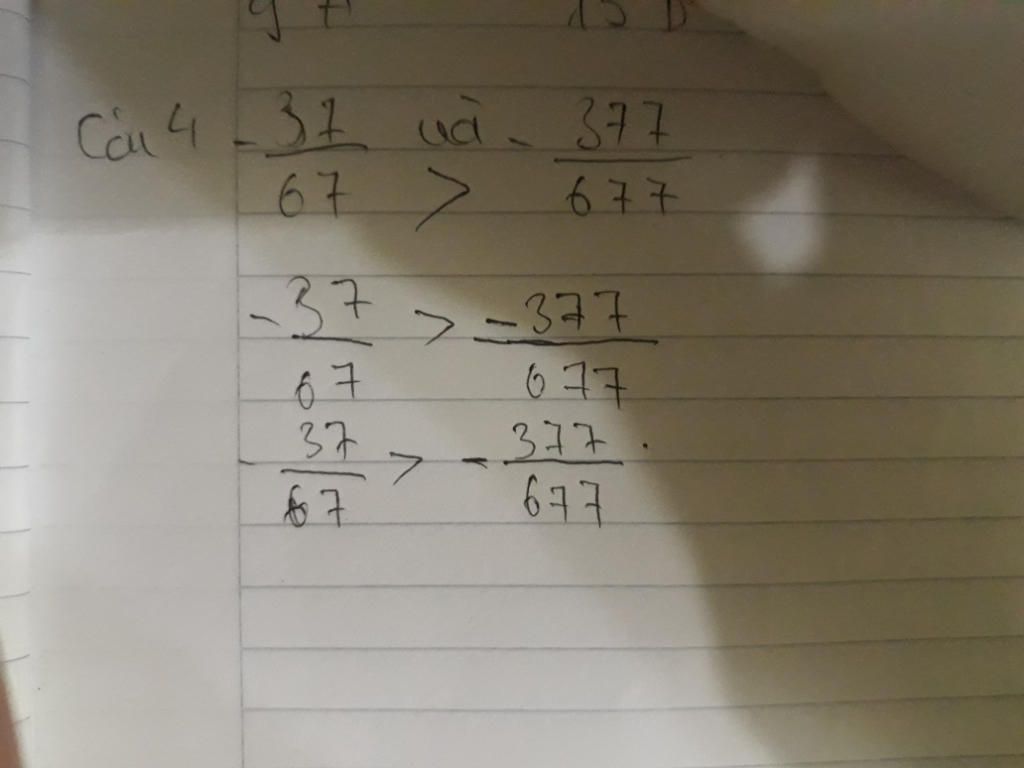 Câu 4 - 37/67 và - 377/677
>
- 37/67 > - 377/677
- 37/67 > - 377/677 .